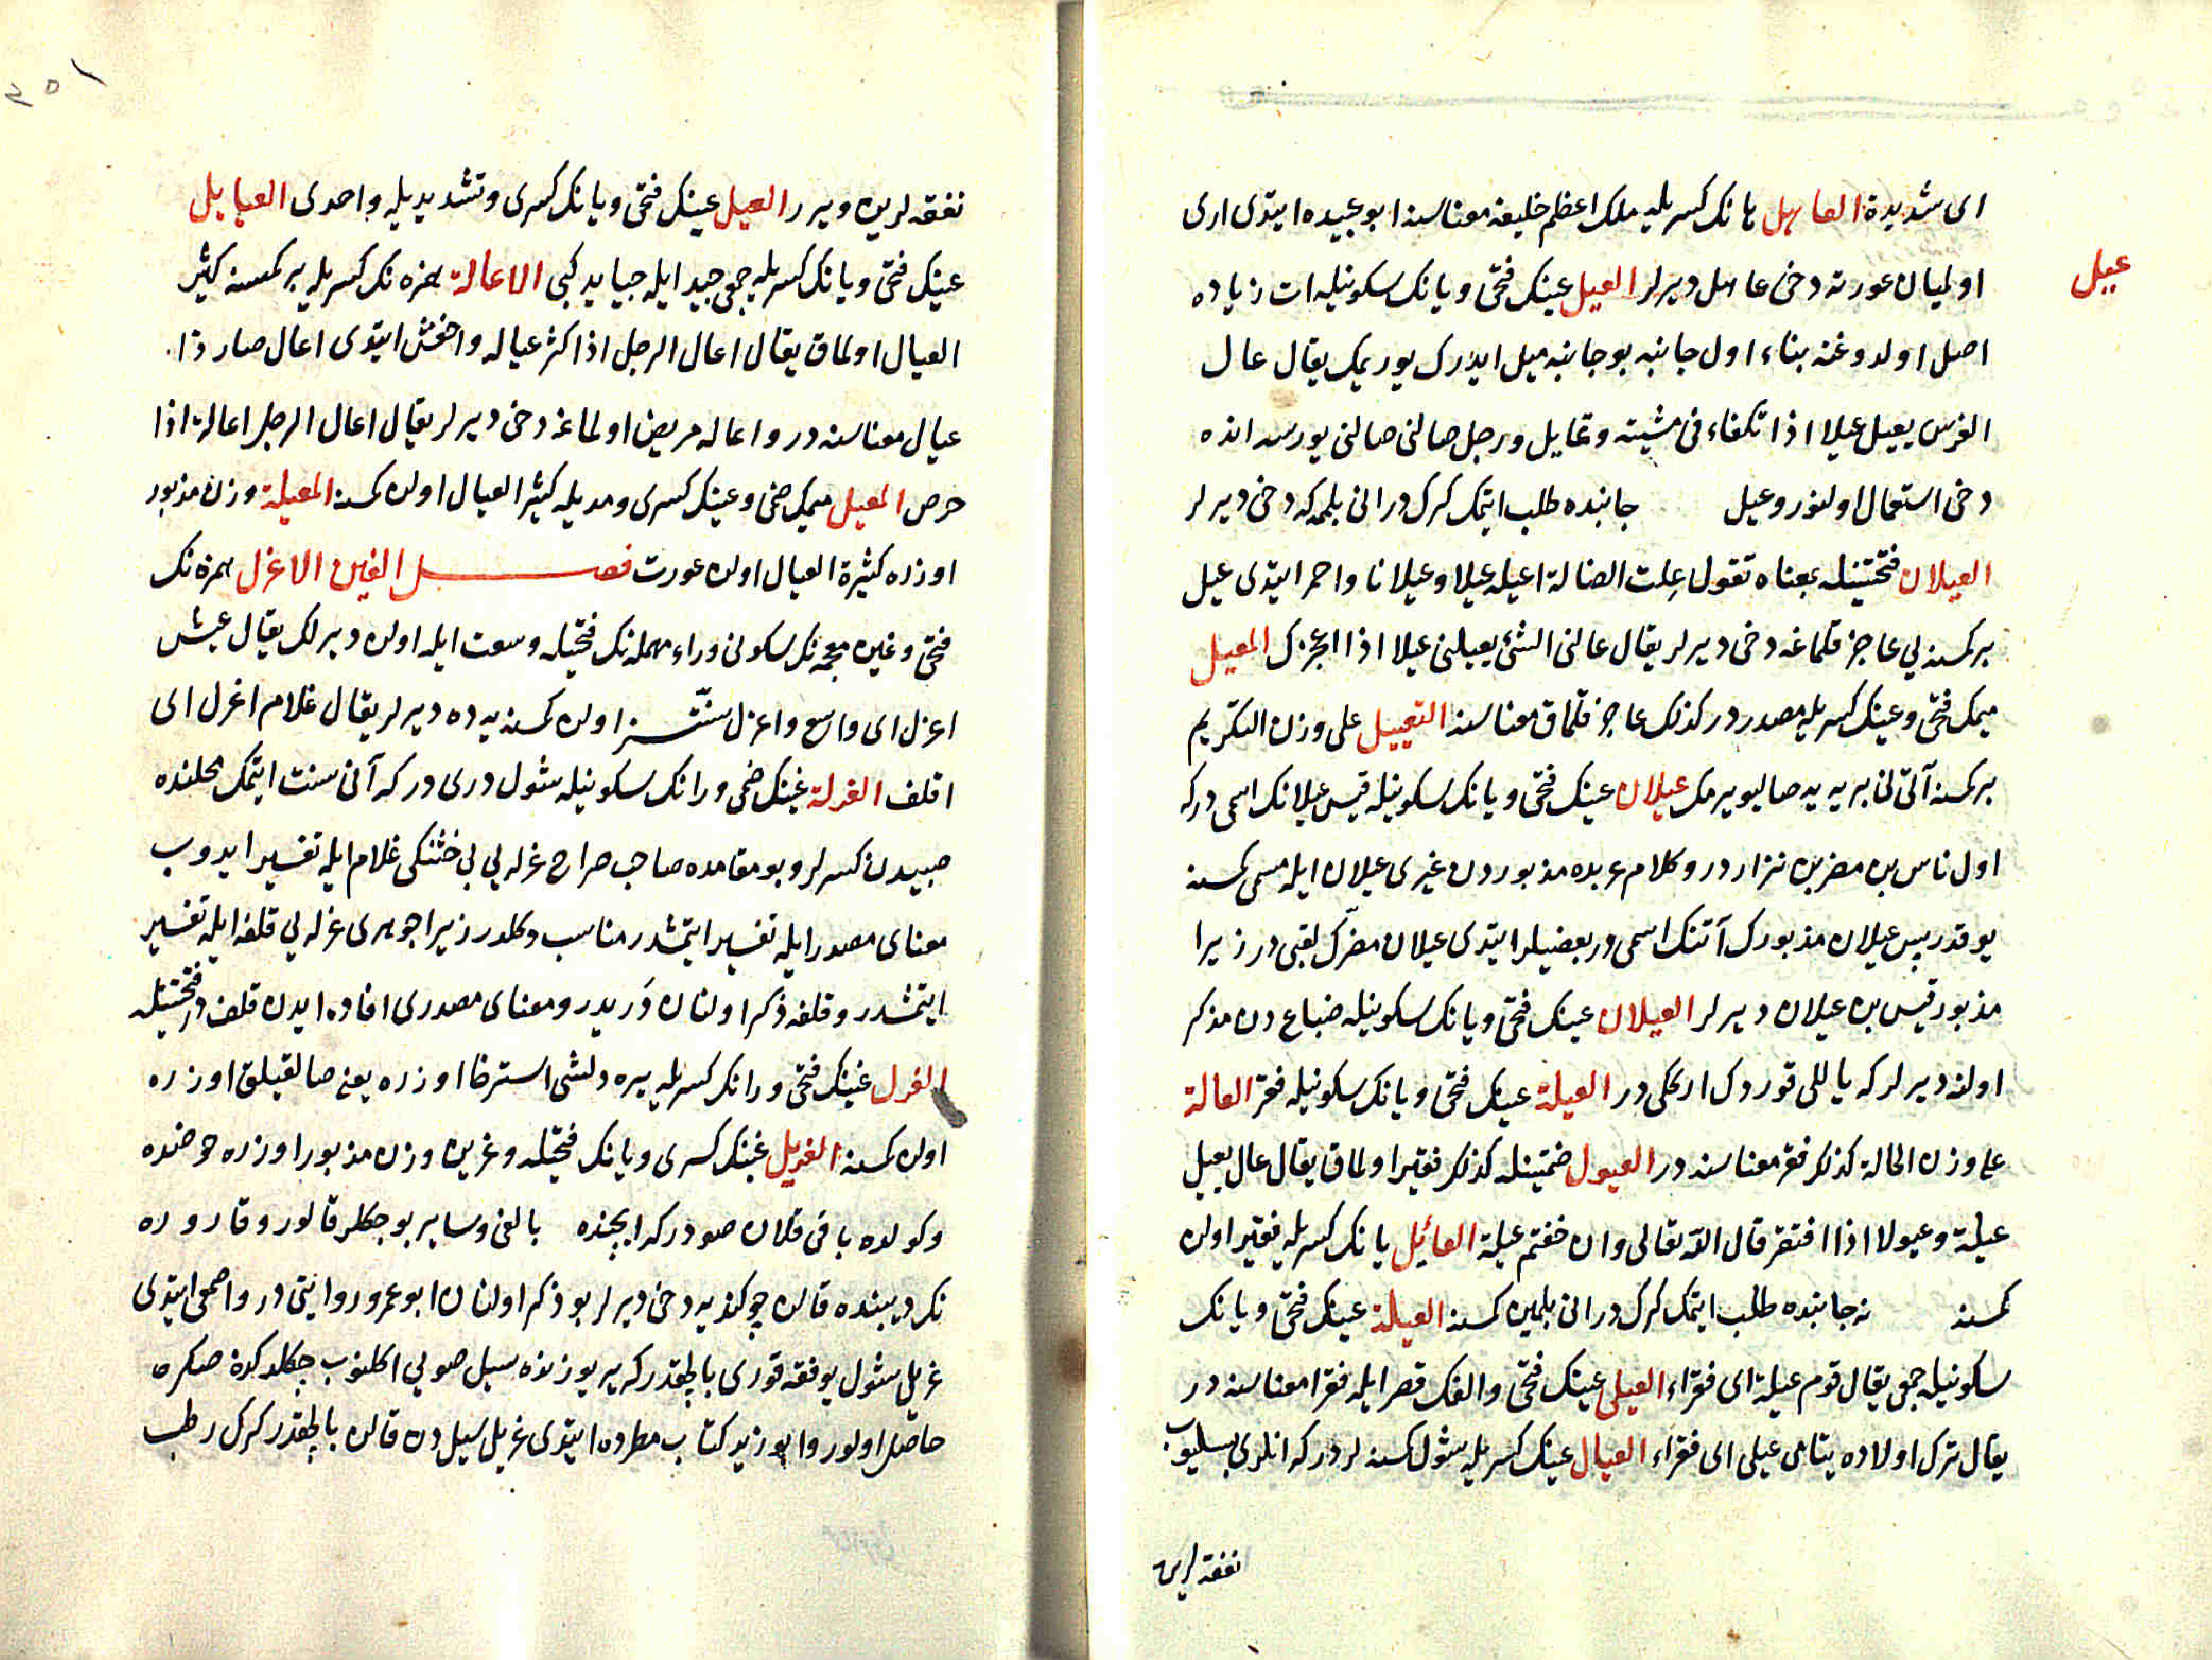 ای شدیدة العاهل هانك كسریله ملك اعظم خلیفه معناسنه ابو عبیده ایتدی اری
عیل
اولمیان عورته دخی عاهل دیرلر العیل عینك فتحی و یانك سكونیله ات زیاده
اصل اولدوغنه بناء اول جانبه بو جانبه میل ایدرك یوریمك یقال عال
الفرس یعیل عیلا اذا تكفاء فی مشیته و تمایل و رجل صالنی صالنی یورسه انده
دخی استعمال اولنور و عیل جانبده طلب ایتمك كرك در انی بلمه كه دخی دیرلر
العیلان فتحتینله بمعناه تقول علت الضالة اعیله عیلا و عیلانا و احمر ایتدی عیل
بر كمسنه یی عاجز قلماغه دخی دیرلر یقال عالنی الشئ یعیلنی عیلا اذا اعجزك المعیل
میمك فتحی و عینك كسریله مصدردر كذلك عاجز قلماق معناسنه التعییل علی وزن التكریم
بر كمسنه آتنی بریه یه صالیویرمك عیلان عینك فتحی و یانك سكونیله قیس عیلانك اسمی در كه
اول ناس بن مضر بن نزار در و كلام عربده مذبوردن غیری عیلان ایله مسمی كمسنه
یوقدر پس عیلان مذبورك آتنك اسمی در بعضیلر ایتدی عیلان مضرك لقبی در زیرا
مذبور قیس بن عیلان دیرلر العیلان عینك فتحی و یانك سكونیله ضباع دن مذكر
اولنه دیرلر كه یاللی قوردك ارككی در العیلة عینك فتحی و یانك سكونیله فقر العالة
علی وزن الحالة كذلك فقر معناسنه در العیول ضمتینله كذلك فقیر اولماق یقال عال یعیل
عیلة و عیولا اذا افتقر قال الله تعالی و ان خفتم عیلة العائل یانك كسریله فقیر اولن
كمسنه نه جانبده طلب ایتمك كرك در انی بلمین كمسنه العیلة عینك فتحی و یانك
سكونیله جمعی یقال قوم عیلة ای فقراء العیلی عینك فتحی و الفك قصر ایله فقرا معناسنه در
یقال ترك اولاده یتامی عیلی ای فقراء العیال عینك كسریله شول كمسنه لردر كه انلری بسلیوب
نفقه لرین
نفقه لرین ویرر العیل عینك فتحی و یانك كسری و تشدیدیله واحدی العیایل
عینك فتحی و یانك كسریله جمعی جید ایله جیاید كبی الاعالة همزه نك كسریله بر كمسنه كثیر
العیال اولماق یقال اعال الرجل اذا كثر عیاله و اخفش ایتدی اعال صار ذا
عیال معناسنه در و اعاله مریض اولماغه دخی دیرلر یقال اعال الرجل اعالة اذا
حرص المعیل میمك ضمی و عینك كسری و مدیله كثیر العیال اولن كمسنه المعیلة وزن مذبور
اوزره كثیرة العیال اولن عورت فصل الغین الاغرل همزه نك
فتحی و غین معجمه نك سكونی و راء مهمله نك فتحیله وسعت ایله اولن دیرلك یقال عیش
اغرل ای واسع و اغرل سنتسز اولن كمسنه یه ده دیرلر یقال غلام اغرل ای
اقلف الغرلة غینك ضمی و رانك سكونیله شول دری در كه آنی سنت ایتمك محلنده
صبیدن كسرلر و بو مقامده صاحب صراح غرله یی بی ختنكی غلام ایله تفسیر ایدوب
معنای مصدر ایله تفسیر ایتمشدر مناسب دكلدر زیرا جوهری غرله یی قلفه ایله تفسیر
ایتمشدر و قلفه ذكر اولنان دریدر و معنای مصدری افاده ایدن قلف در فتحتینله
الغرل غینك فتحی و رانك كسریله یره دلشی استرخا اوزره یعنی صالقیلق اوزره
اولن كمسنه الغریل غینك كسری و یانك فتحیله و غرین وزن مذبور اوزره حوضده
و كولده باقی قلان صودر كه ایچنده بالغی و سایر بوجكلر قالور و قاروره
نك دیبنده قالن چوكندیه دخی دیرلر بو ذكر اولنان ابو عمرو روایتی در و اصمعی ایتدی
غریل شول یوفقه قوری بالچقدر كه یر یوزنده سیل صویی اكلنوب چكلدكدن صكره
حاصل اولور و ابو زید كتاب مطرده ایتدی غریل سیل دن قالن بالچقدر كرك رطب